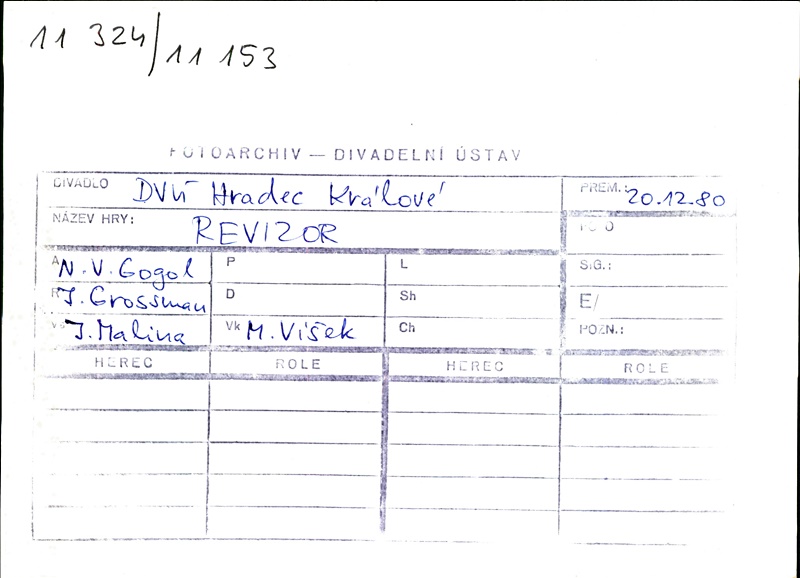 11 324/11 153
FOTOARCHIV — DIVADELNÍ ÚSTAV
DIVADLO DVÚ Hradec Králové PREM.: 20.12.80
NÁZEV HRY: REVIZOR FOTO
A N.V. Gogol P L SIG.:
R J. Grossman D Sh E/
Vs J. Malina Vk M. Višek Ch POZN.:
HEREC ROLE HEREC ROLE